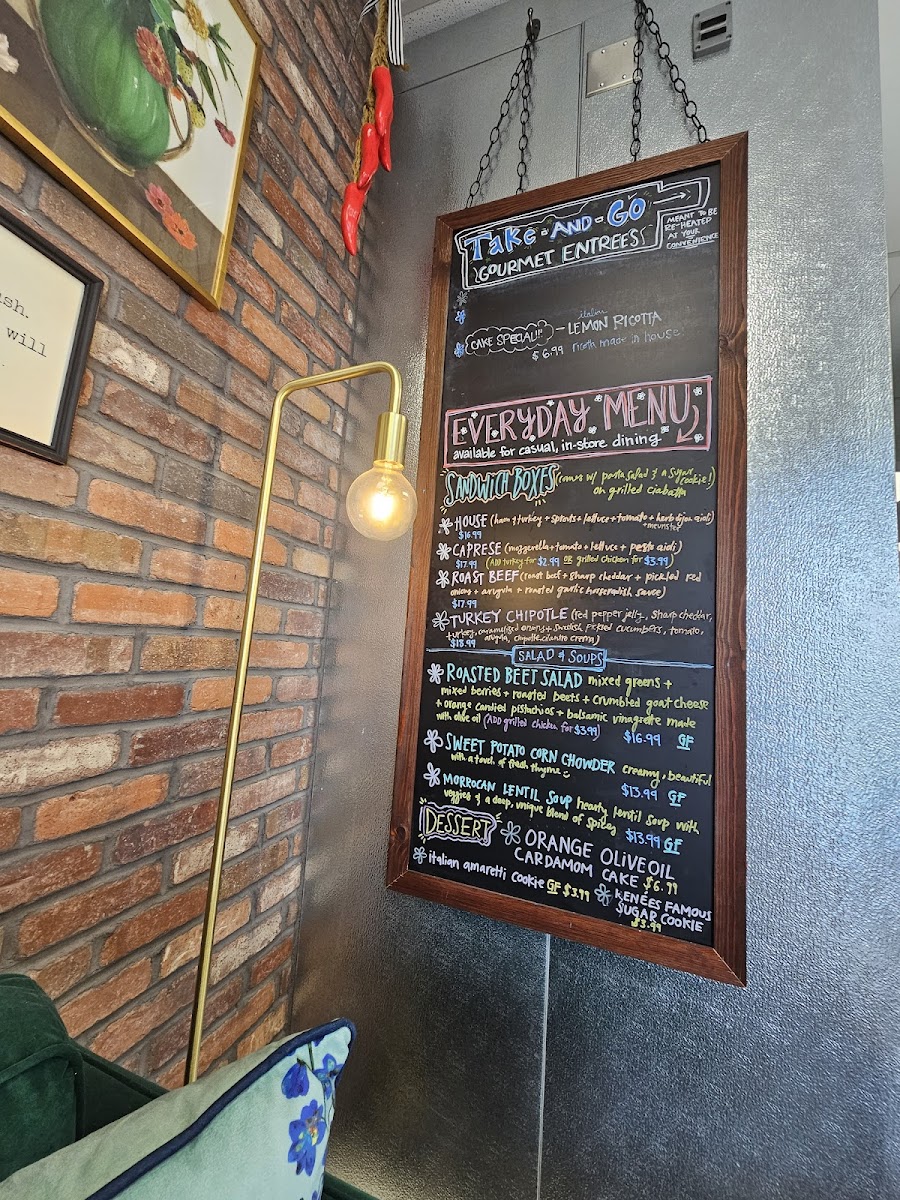 ush.
will
Take-AND-GO
GOURMET ENTREES
MEANT TO BE
RE-HEATED
AT YOUR
CONVENIENCE
CAKE SPECIAL!! - italian LEMON RICOTTA
$6.99 ricotta made in house
EVERYDAY MENU
available for casual, in-store dining
SANDWICH BOXES (comes w/ pasta salad & a sugar cookie!)
on grilled ciabatta
HOUSE (ham & turkey + sprouts + lettuce + tomato + herb dijon aioli)
+ meunster
$16.99
CAPRESE (mozzerella + tomato + lettuce + pesto aioli)
$17.99 (ADD turkey for $2.99 OR grilled chicken for $3.99)
ROAST BEEF (roast beef + sharp cheddar + pickled red
onions + arugula + roasted garlic horseradish sauce)
$17.99
TURKEY CHIPOTLE (red pepper jelly, sharp cheddar,
turkey, caramelized onions + swedish pickled cucumbers, tomato,
arugula, chipotle cilantro crema)
$18.99
SALAD & SOUPS
ROASTED BEET SALAD mixed greens +
mixed berries + roasted beets + crumbled goat cheese
+ orange candied pistachios + balsamic vinagrette made
with olive oil (ADD grilled chicken for $3.99) $16.99 GF
SWEET POTATO CORN CHOWDER creamy, beautiful
with a touch of fresh thyme $13.99 GF
MORROCAN LENTIL SOUP hearty lentil soup with
veggies & a deep, unique blend of spices $13.99 GF
DESSERT
ORANGE OLIVE OIL
CARDAMOM CAKE $6.99
italian amaretti cookie GF $3.99
RENÉES FAMOUS
SUGAR COOKIE
$3.99